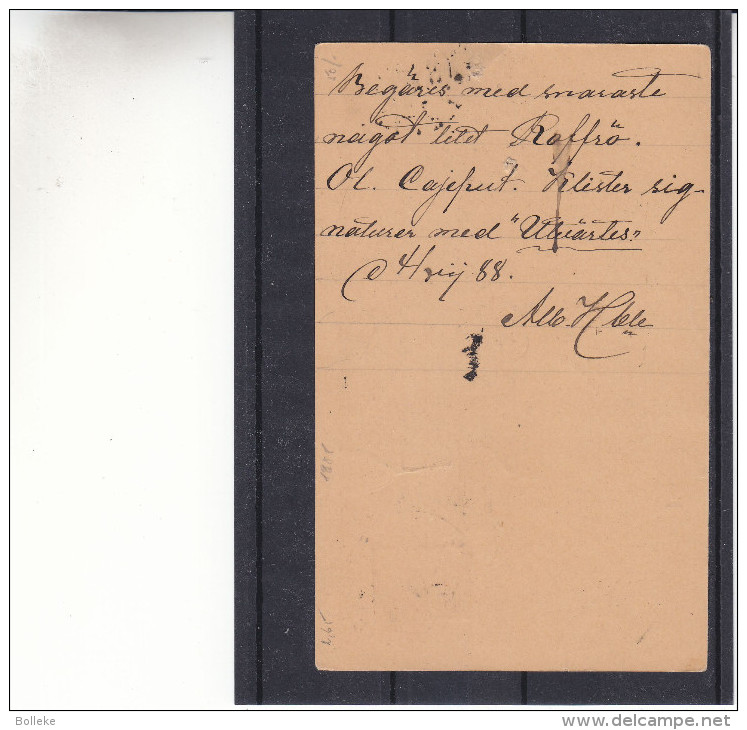 Begäres med snaraste
något litet Raffrö.
Ol. Cajeput. Klister sig-
naturer med "Utvärtes"
d 4/vij 88.
Alb.
1888
Bolleke
www.delcampe.net